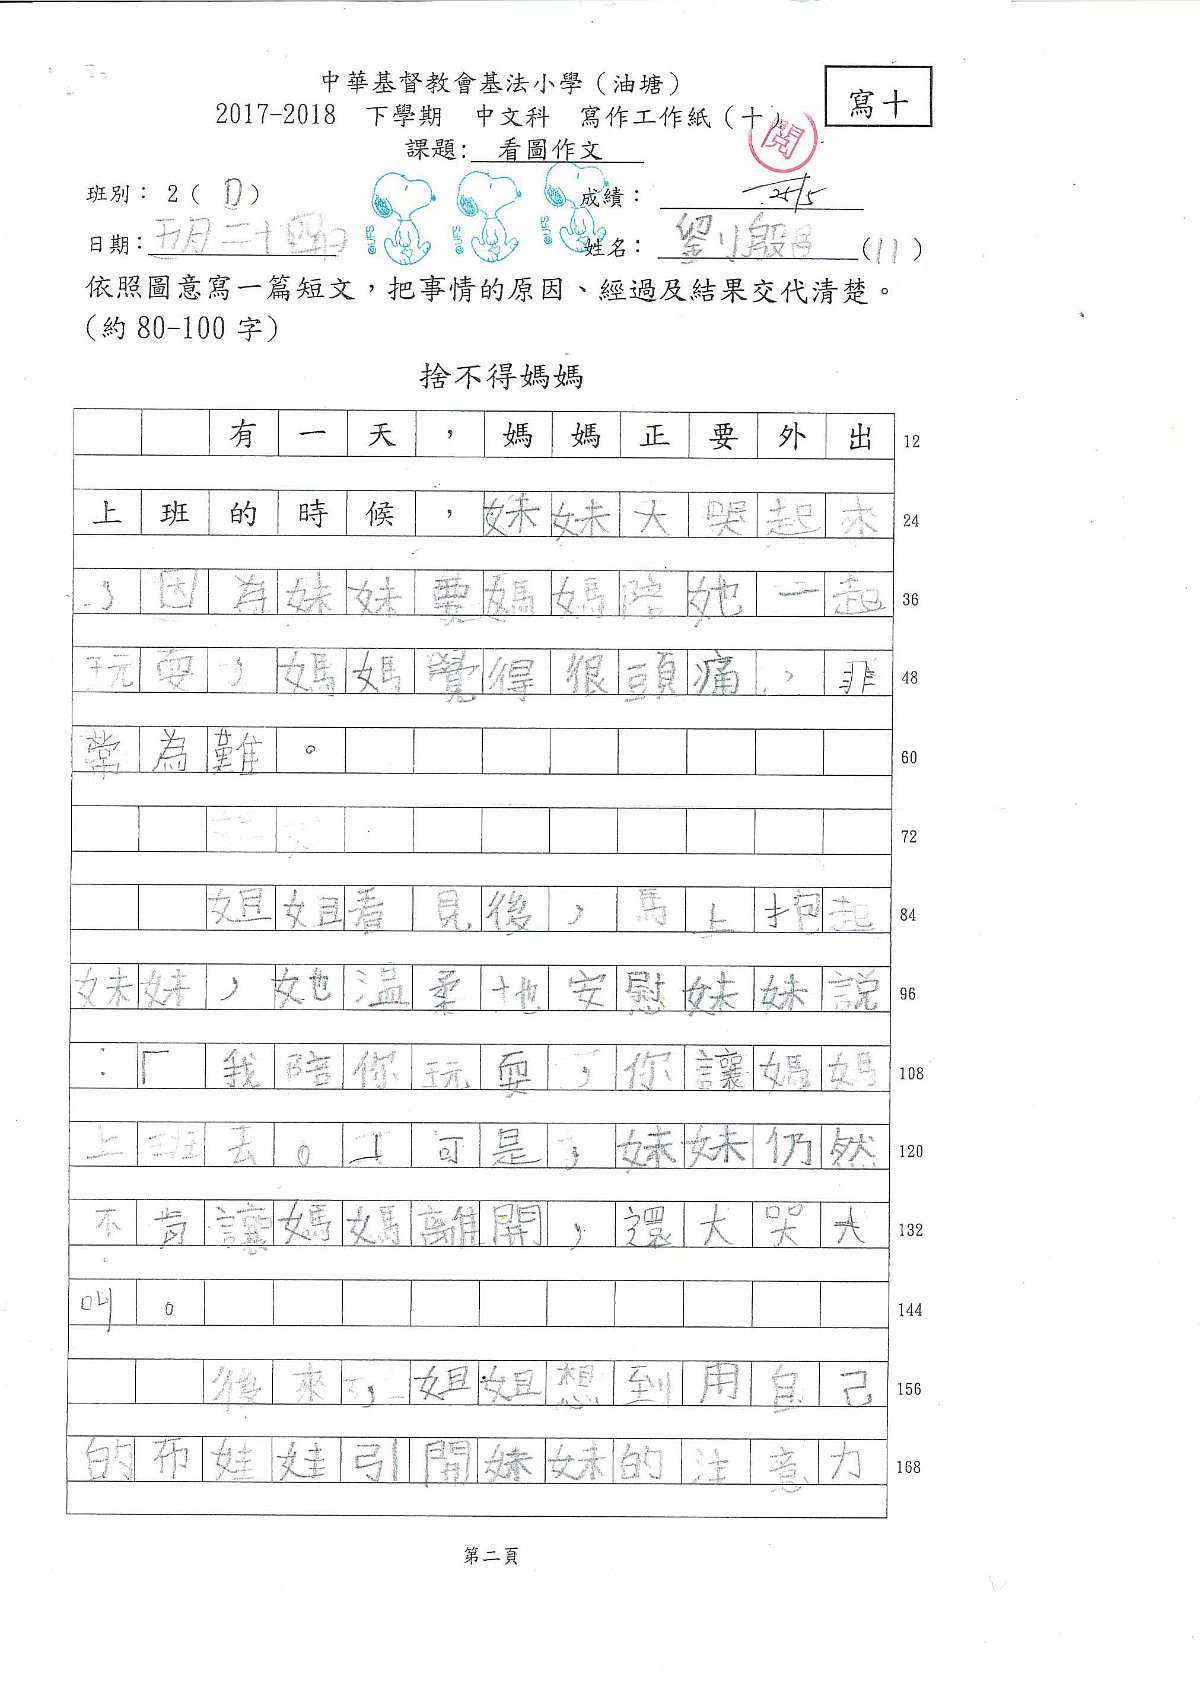 中華基督教會基法小學（油塘）
寫十
2017-2018 下學期 中文科 寫作工作紙（十）
閱
課題: 看圖作文
班別： 2（D）
成績： 25/5
日期: 五月二十四日
姓名: 劉殷昌（11）
©UFS ©UFS ©UFS
依照圖意寫一篇短文，把事情的原因、經過及結果交代清楚。
（約 80-100 字）
捨不得媽媽
有一天，媽媽正要外出 12
上班的時候，妹妹大哭起來 24
，因為妹妹要媽媽陪她一起 36
玩耍，媽媽覺得很頭痛，非 48
常為難。 60
72
姐姐看見後，馬上抱起 84
妹妹，她溫柔地安慰妹妹說 96
：「我陪你玩耍，你讓媽媽 108
上班去。」可是，妹妹仍然 120
不肯讓媽媽離開，還大哭大 132
叫。 144
後來，姐姐想到用自己 156
的布娃娃引開妹妹的注意力 168
第二頁